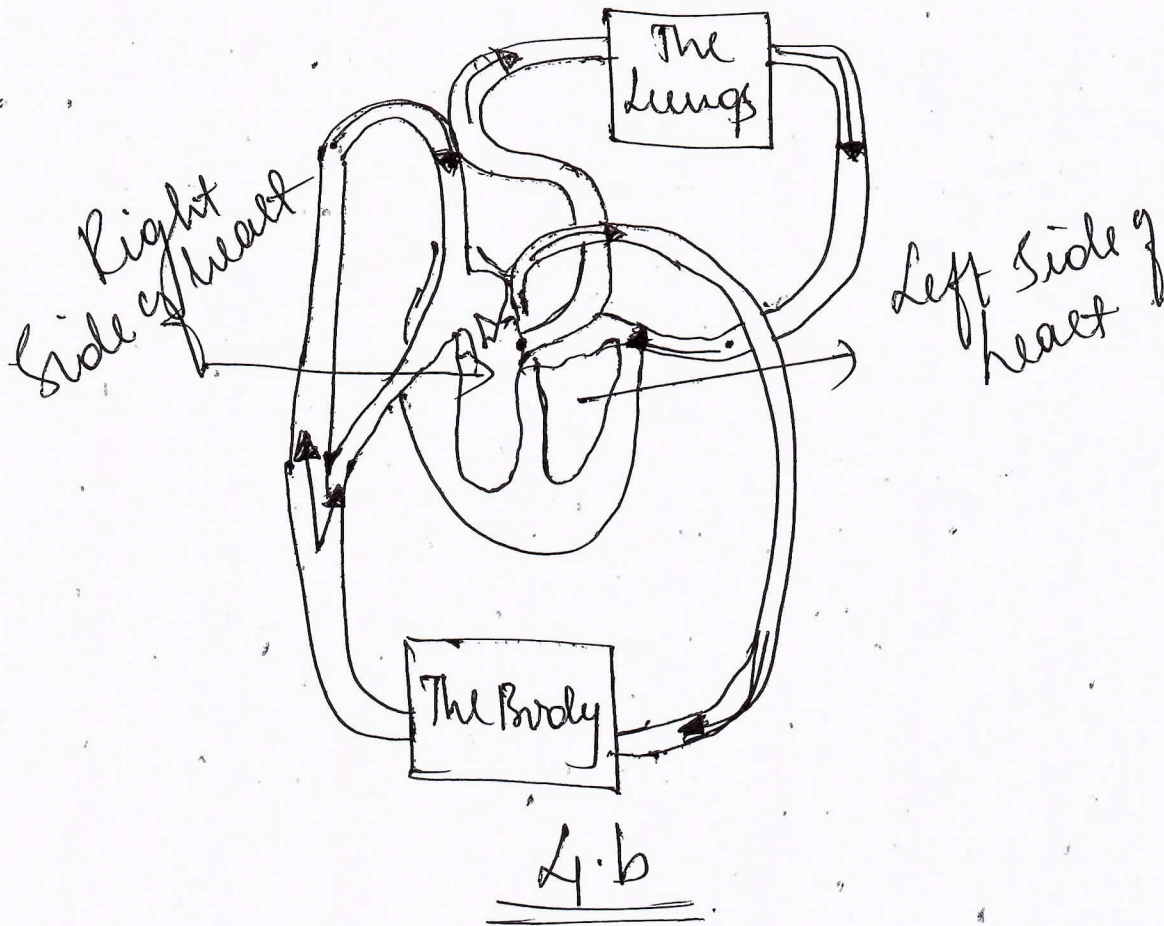 The
Lungs
Right
Side of heart
Left Side of
heart
The Body
4.b